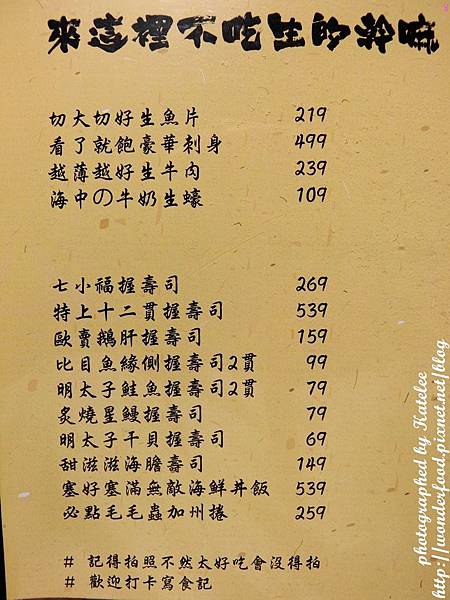 來這裡不吃生的幹麻
切大切好生魚片 219
看了就飽豪華刺身 499
越薄越好生牛肉 239
海中の牛奶生蠔 109
七小福握壽司 269
特上十二貫握壽司 539
歐賣鵝肝握壽司 159
比目魚緣側握壽司2貫 99
明太子鮭魚握壽司2貫 79
炙燒星鰻握壽司 79
明太子干貝握壽司 69
甜滋滋海膽壽司 149
塞好塞滿無敵海鮮丼飯 539
必點毛毛蟲加州捲 259
# 記得拍照不然太好吃會沒得拍
# 歡迎打卡寫食記
photographed by Katelee
http://wonderfood.pixnet.net/blog